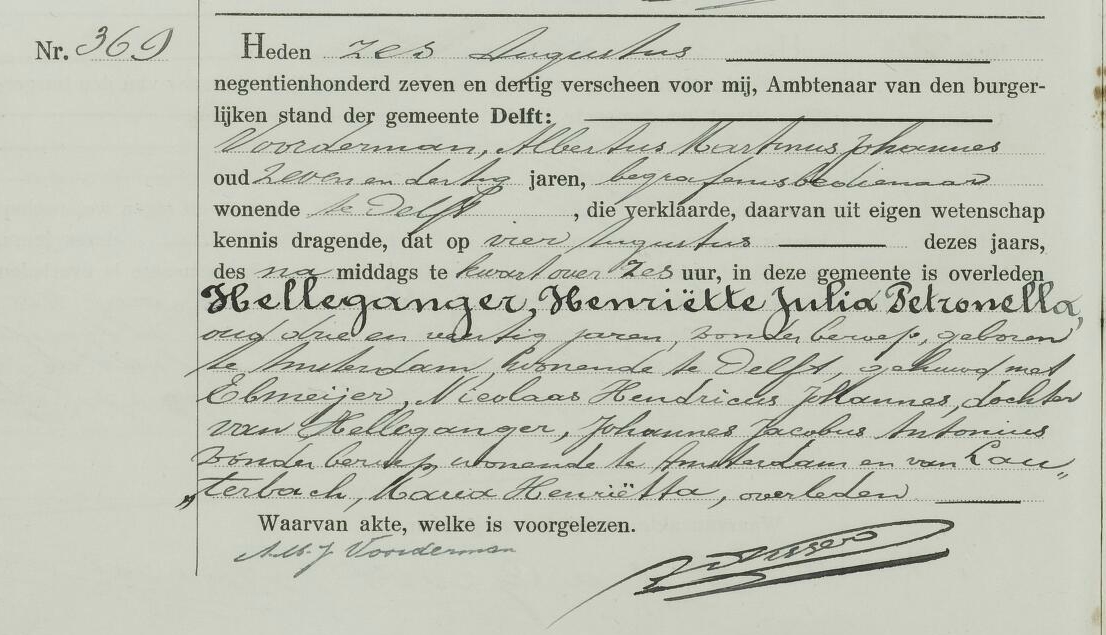 Nr. 369
Heden zes Augustus
negentienhonderd zeven en dertig verscheen voor mij, Ambtenaar van den burger-
lijken stand der gemeente Delft:
Voorderman, Albertus Martinus Johannes
oud zeven en dertig jaren, begrafenisbedienaar
wonende te Delft, die verklaarde, daarvan uit eigen wetenschap
kennis dragende, dat op vier Augustus dezes jaars,
des na middags te kwart over zes uur, in deze gemeente is overleden
Helleganger, Henriëtte Julia Petronella,
oud drie en veertig jaren, zonder beroep, geboren
te Amsterdam, wonende te Delft, gehuwd met
Ebmeijer, Nicolaas Hendricus Johannes, dochter
van Helleganger, Johannes Jacobus Antonius
zonder beroep, wonende te Amsterdam en van Lau„
„terbach, Maria Henriëtta, overleden
Waarvan akte, welke is voorgelezen.
A.M.J Voorderman